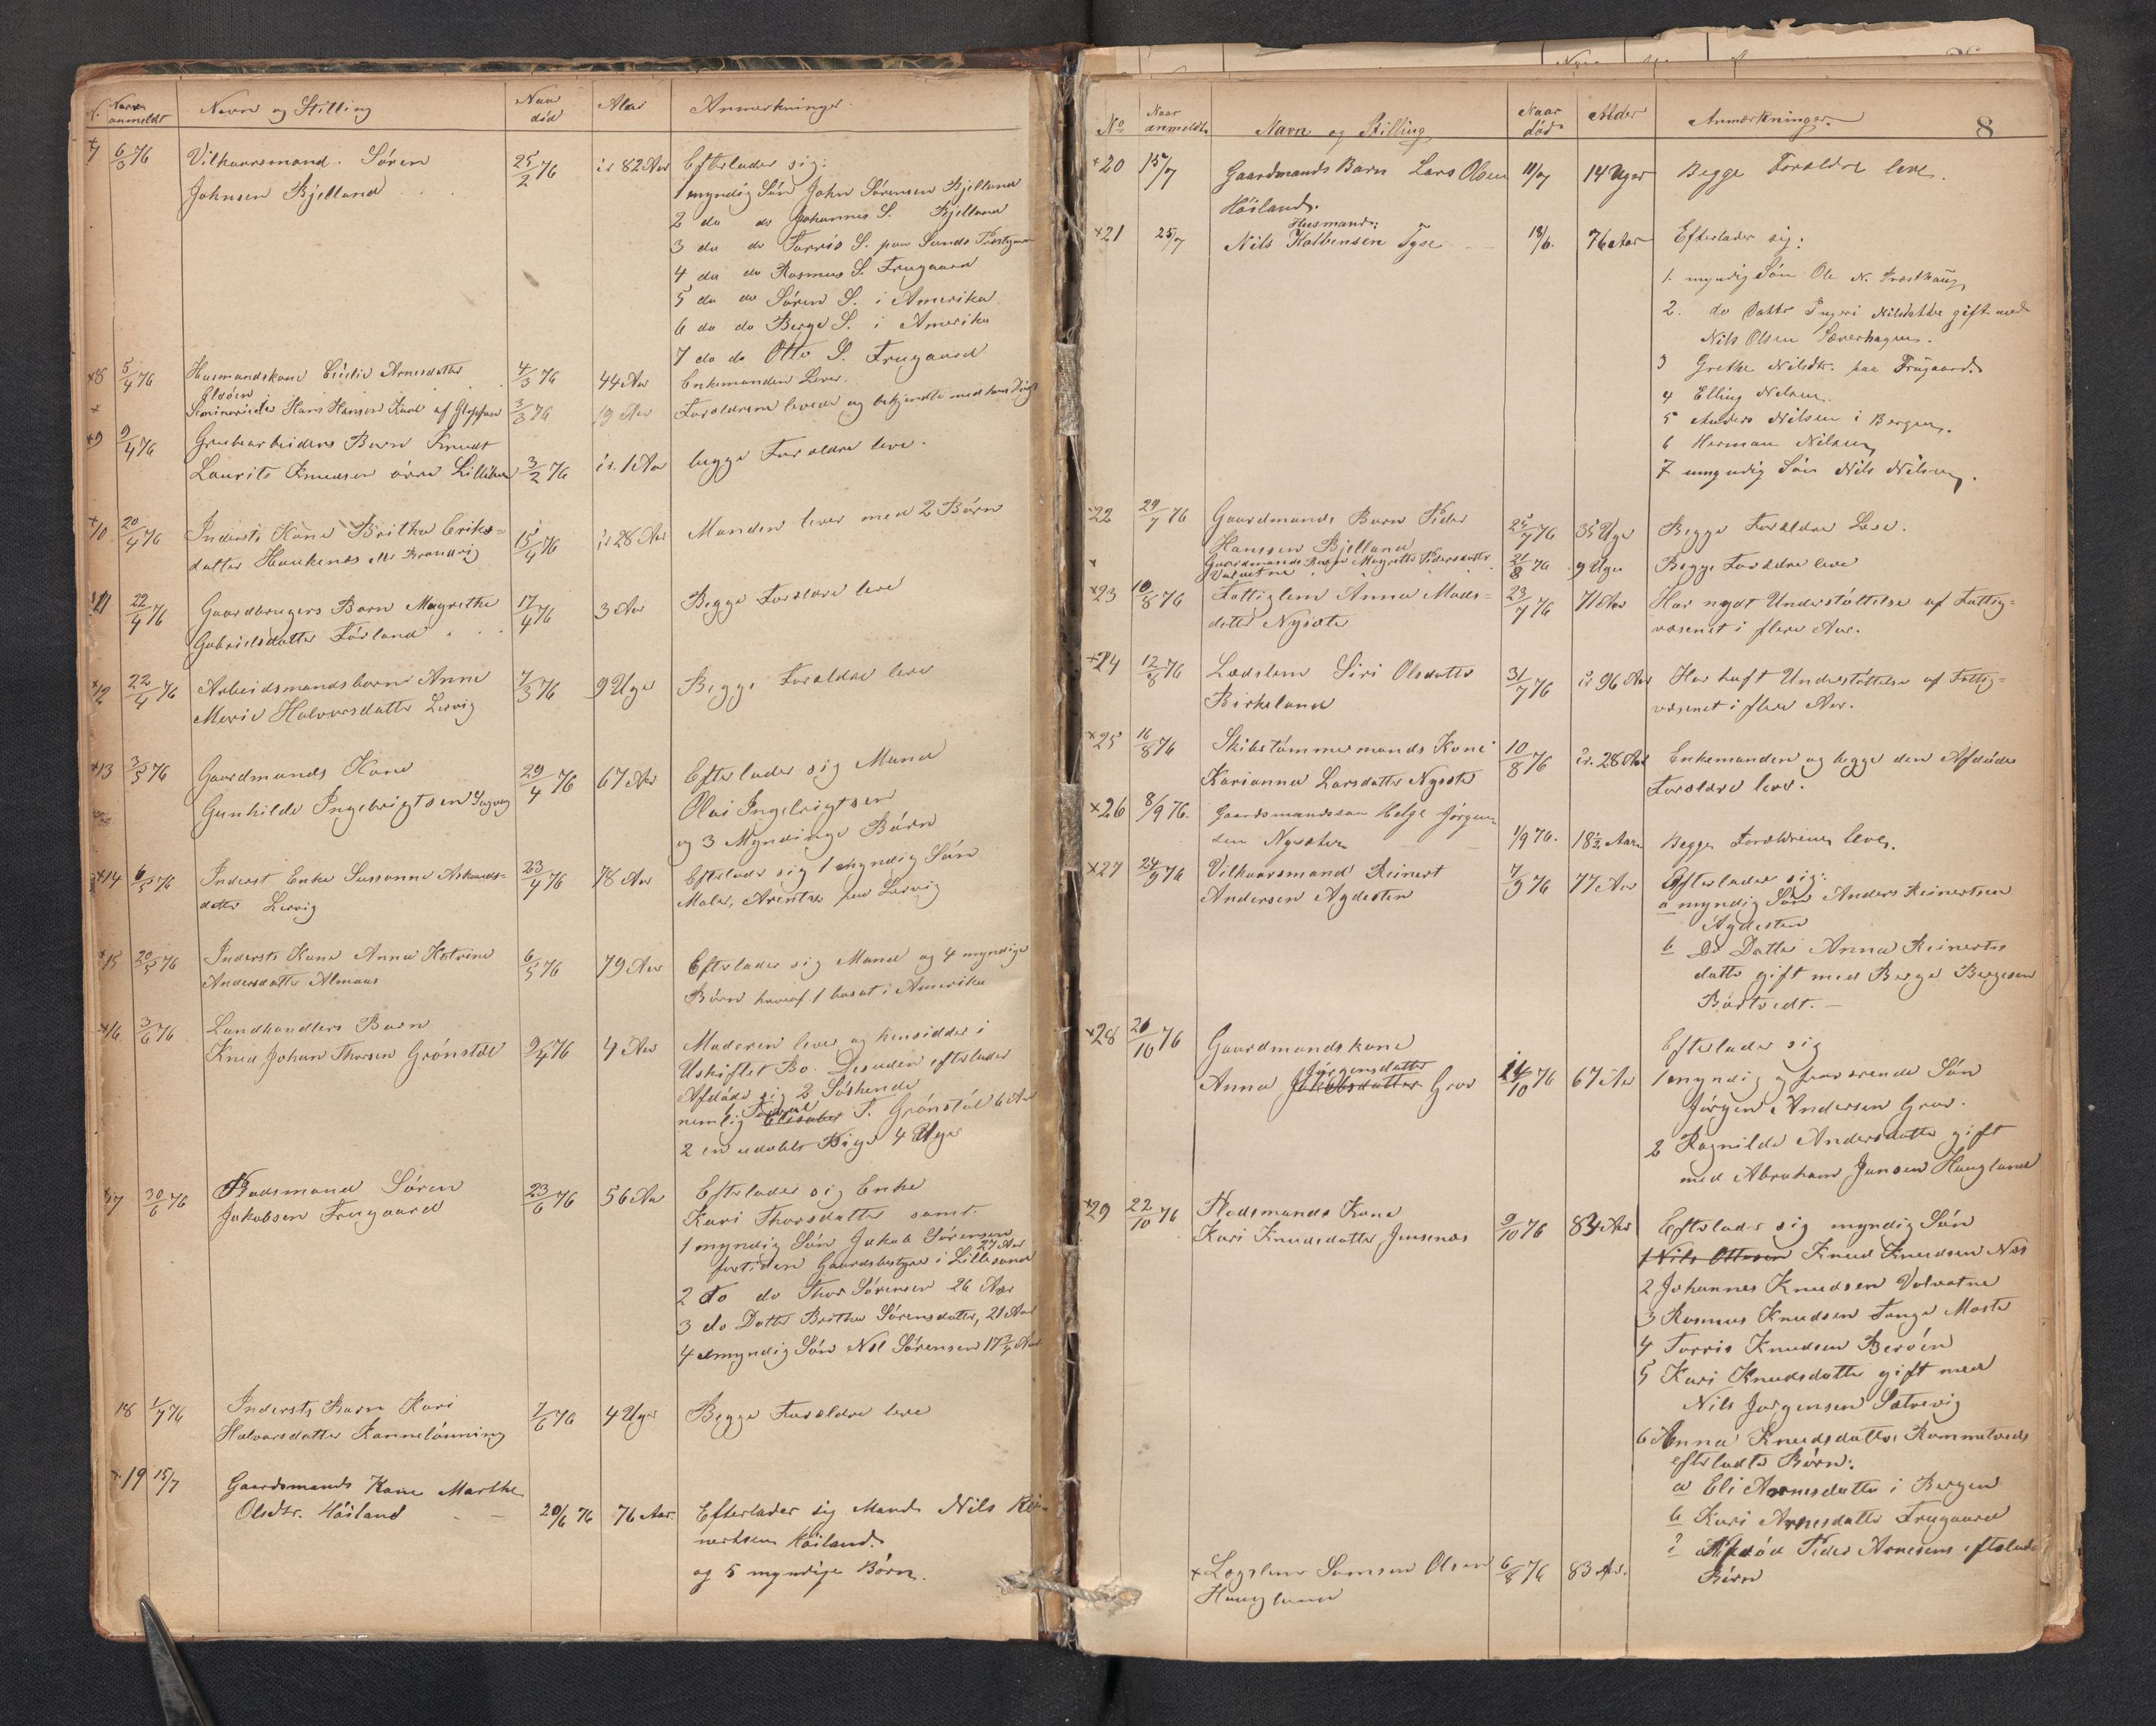 No Naar anmeldt Navn og Stilling Naar død Alder Anmerkninger
7 6/3 76 Vilkaarsmand Søren 25/2 76 ir 82 Aar Efterlader sig:
Johnsen Bjelland 1 myndig Søn John Sørensen Bjelland
2 do do Johannes S. Bjelland
3 do do Torris S. paa Sunds
4 do do Rasmus S. Frugaard
5 do do Søren S. i Amerika
6 do do Berge S. i Amerika
7 do do Otto S. Frugaard
8 5/4 76 Husmandskone Arnesdatter 4/3 76 44 Aar Enkemanden Lever.
Seminarist Hans Hansen af 3/3 76 19 Aar Forældrene levede og
9 9/4 76 Grubearbeiders Barn Knudt
Laurits Knudsen 3/2 76 ir. 1 Aar begge Forældre leve.
10 20/4 76 Indersts Kone Britha Eriks= 15/4 76 ir 28 Aar Manden lever med 2 Børn
datter
11 22/4 76 Gaardbrugers Barn Magrethe 17/4 76 3 Aar Begge Forældre leve
Gabrielsdatter Førland
12 22/4 76 Arbeidsmandsbarn Anne 7/3 76 9 Uger Begge Forældre leve
Marie Halvorsdatter Lervig
13 3/5 76 Gaardmands Kone 29/4 76 67 Aar Efterlader sig Mand
Gunhilde Ingebrigtsen Sagvaag Olai Ingebrigtsen
og 3 Myndinge Børn
14 6/5 76 Inderst Enke Sussanne 23/4 76 78 Aar Efterlader sig 1 myndig Søn
datter Lervig Maler, paa Lervig
15 20/5 76 Indersts Kone Anna Katrine 6/5 76 79 Aar Efterlader sig Mand og 4 myndige
Andersdatter Almaas Børn hvoraf 1 bosat i Amerika
16 3/6 76 Landhandlers Barn
Knud Johan Thorsen Grønstøl 9/4 76 4 Aar Moderen lever og hensidder i
Uskiftet Bo. Desuden efterlader
Afdøde sig 2 Søskende
nemlig T. Grønstøl 6 Aar
2 en udøbt Pige 4 Uger
17 30/6 76 Pladsmand Søren 23/6 76 56 Aar Efterlader sig Enke
Jakobsen Frugaard Kari Thorsdatter samt:
1 myndig Søn Jakob Sørensen 27 Aar
fortiden Gaardsbestyrer i Lillesand
2 do do Thor Sørensen 26 Aar
3 do Datter Britha Sørensdatter, 21 Aar
4 umyndig Søn Nil Sørensen 17 3/4 Aar
18 1/7 76 Indersts Barn Kari 7/6 76 4 Uger Begge Forældre leve
Halvorsdatter Kannelønning
19 15/7 Gaardsmands Kone Marthe
Olsdtr. Höiland 20/6 76 76 Aar. Efterlader sig Mand Nils Rei=
nertsen Höiland.
og 5 myndige Börn.
8
No Naar anmeldt Navn og Stilling Naar død Alder Anmærkninger
20 15/7 Gaardmands Barn Lars Olsen 11/7 14 Uger Begge Forældre leve.
Höiland.
Husmand:
21 25/7 Nils Kolbensen Tyse 18/6. 76 Aar Efterlader sig:
1. myndig Søn Ole N. Præsthaug,
2. do Datter Ingeri Nilsdatter gift med
Nils Olsen Sæverhagen.
3 Grethe Nilsdtr. paa Frugaard.
4 Elling Nilsen.
5 Anders Nilsen i Bergen,
6 Herman Nilsen,
7 umyndig Søn Nils Nilsen,
22 29/7 76 Gaardmands Barn Peder 25/7 76 35 Uger Begge Forældre Leve.
Hanssen Bjelland
Gaardmands Barn Magrethe Pedersdatter 21/8 76 9 Uger Begge Forældre leve
Valvatne
23 10/8 76 Fattiglem Anna Mads= 23/7 76 71 Aar Har nydt Understøttelse af Fattig=
datter Nysæter væsenet i flere Aar.
24 12/8 76 Lædslem Siri Olsdatter 31/7 76 ir 96 Aar Har haft Understøttelse af Fattig=
Birkeland væsenet i flere Aar.
25 16/8 76 Skibstømmermands Kone 10/8 76 ir. 28 Aar Enkemanden og begge den Afdødes
Karianna Larsdatter Nysæter Forældre lever.
26 8/9 76. Gaardsmandssøn Helge Jörgen=
sen Nysæter 1/9 76. 18 1/2 Aar Begge Forældrene leve.
27 24/9 76 Vilkaarsmand Reinert 7/9 76 77 Aar Efterlader sig:
Andersen Agdesten a myndig Søn Anders Reinertsen
Agdesten
b Do Datter Anna Reinerts
datter gift med Berge Bergesen
Bårtvedt.
28 20/10 76 Gaardmandskone Efterlader sig
Jørgensdatter
Anna Jakobsdatter Grov 14/10 76 67 Aar 1 myndig og fraværende Søn
Jørgen Andersen Grov.
2 Ragnilde Andersdatter gift
med Abraham Jansen Haugland
29 22/10 76 Pladsmands Kone
Kari Knudsdatter Jensenæs 9/10 76 83 Aar Efterlader sig myndig Søn
1 Nils Ottesen Knud Knudsen Næs
2 Johannes Knudsen Valvatne
3 Rasmus Knudsen Tange Moster
4 Torris Knudsen Berøen
5 Kari Knudsdatter gift med
Nils Jørgensen Sætrevig
6 Anna Knudsdatter Rommetveds
efterladte Børn:
a Eli Arnesdatter i Bergen
b Kari Arnesdatter Frugaard
? Afdød Peder Arnesens efterladte
Børn
Lægslem Samson Olsen 6/8 76 83 Aar.
Haugland